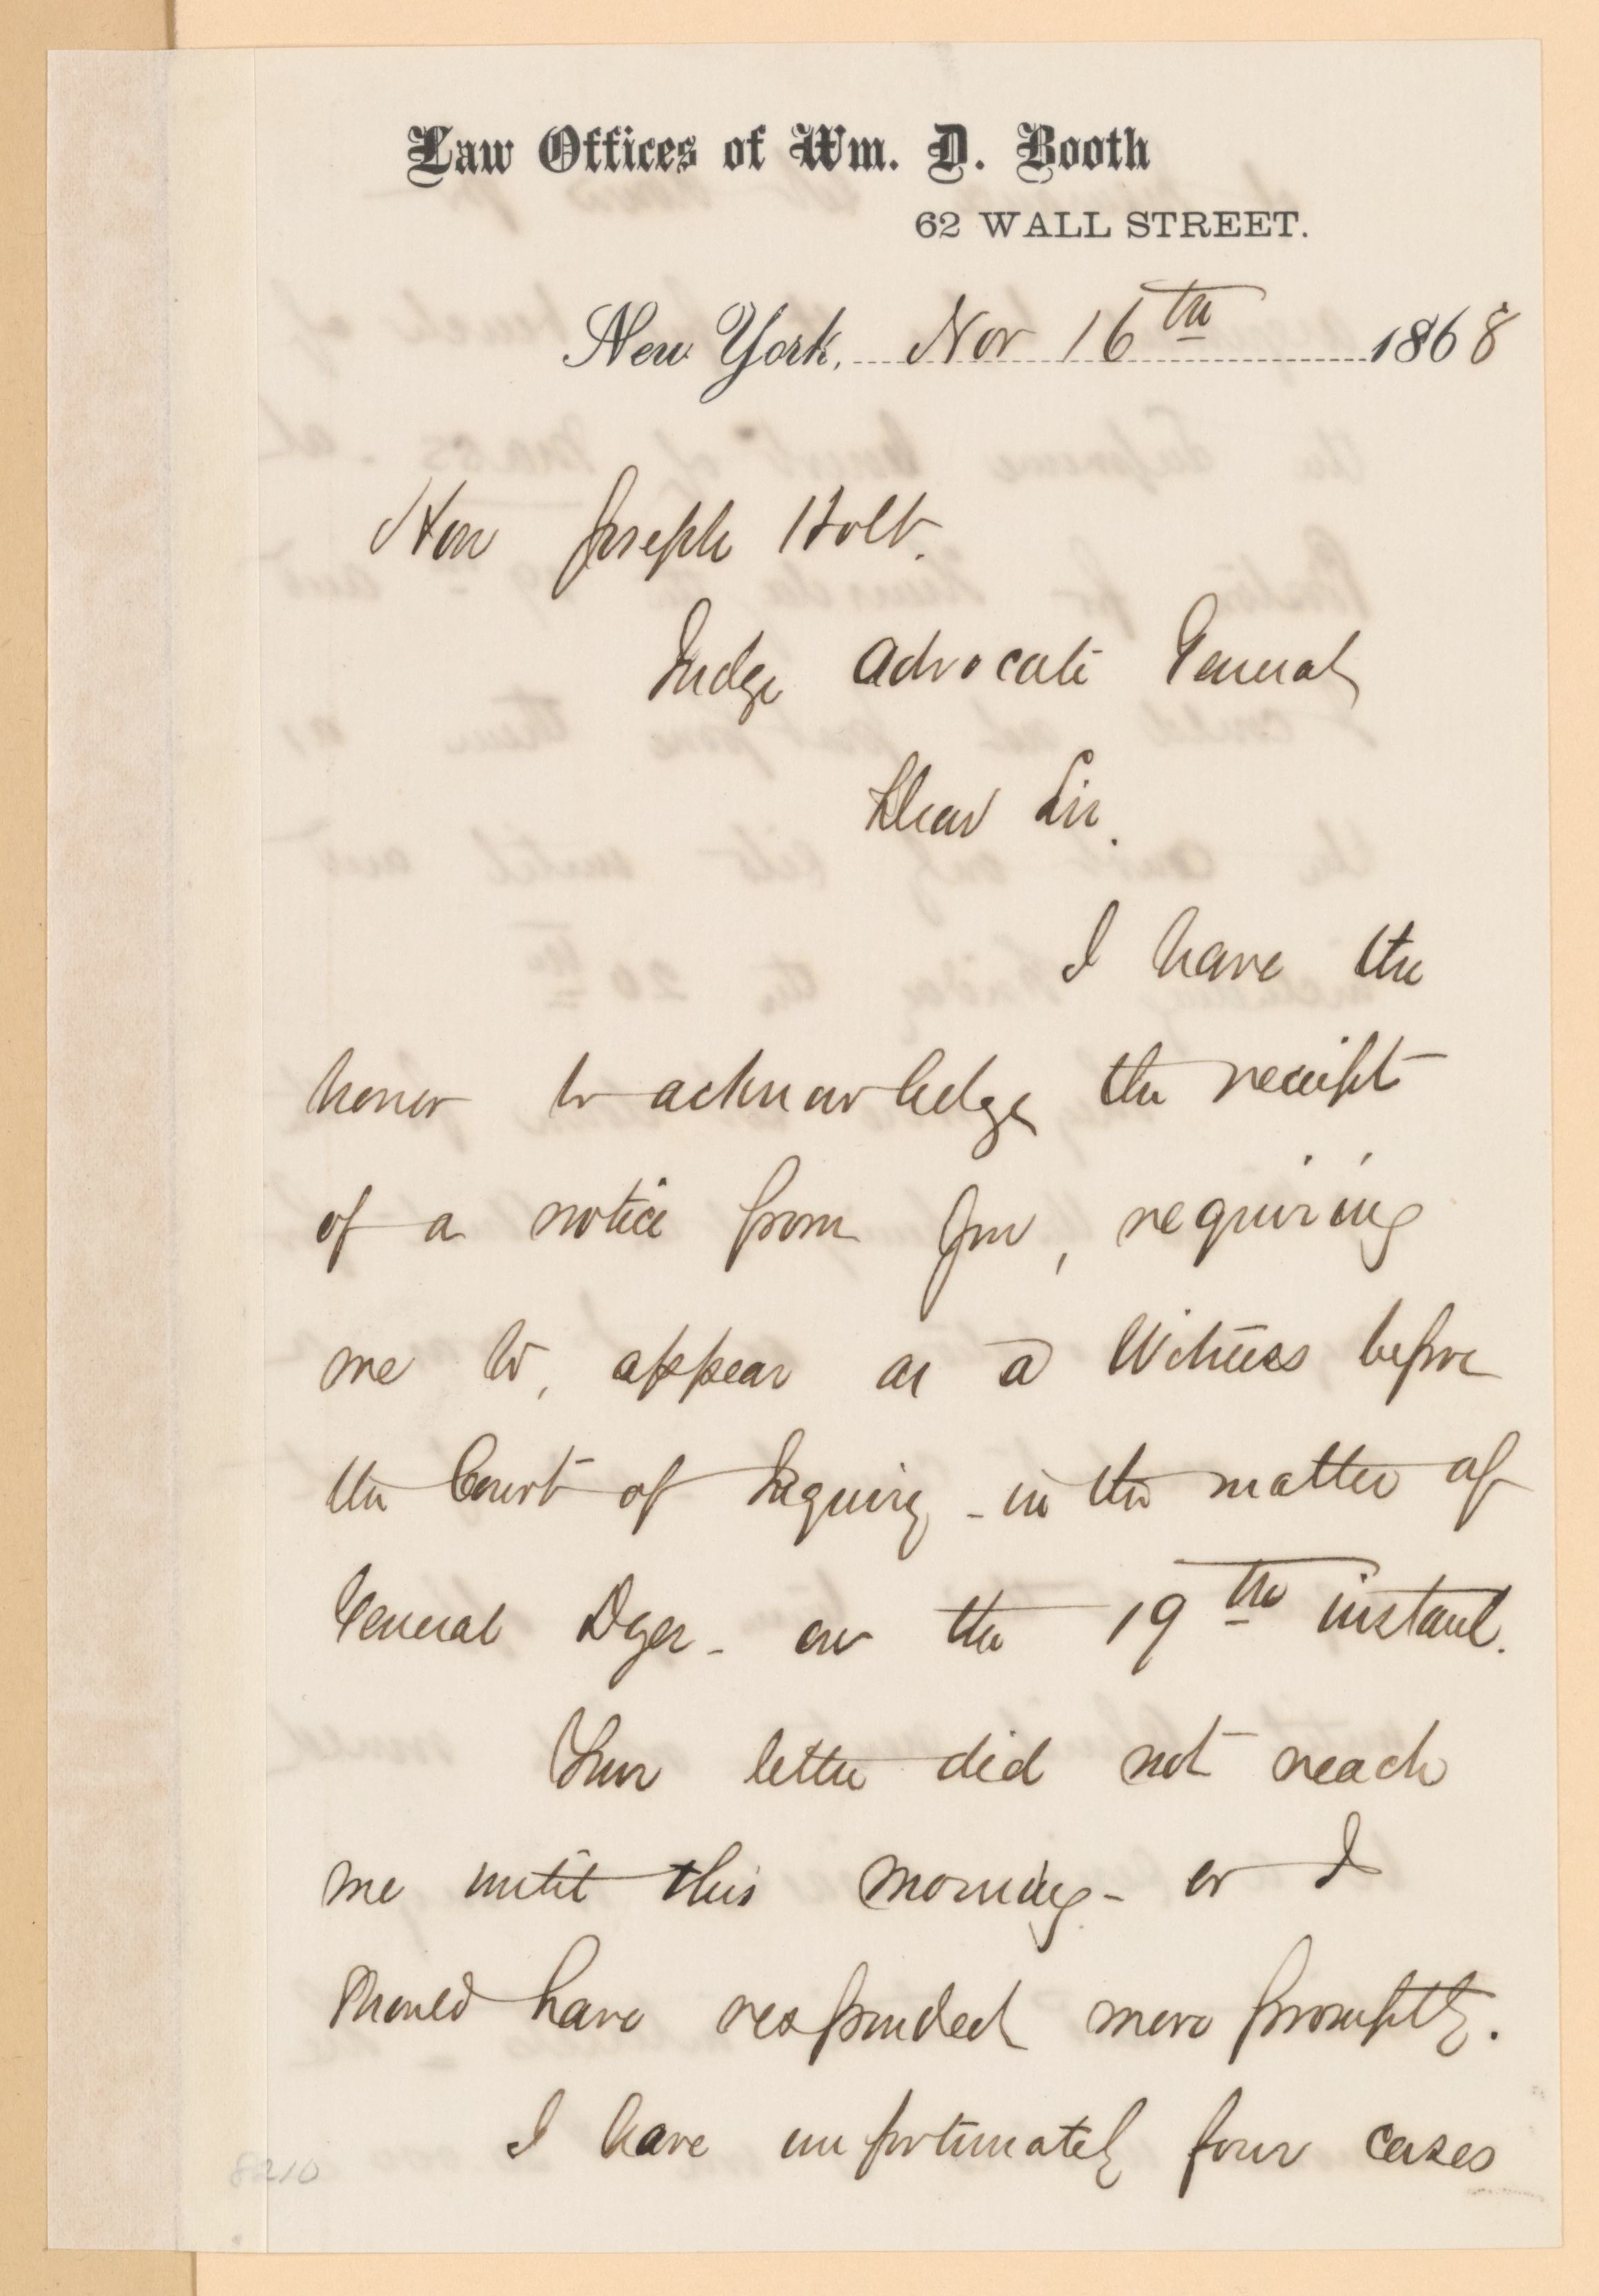 Law Offices of Wm. D. Booth
62 WALL STREET.
New York, Nov 16th 1868
Hon Joseph Holt.
Judge Advocate General
Dear Sir.
I have the
honor to acknowledge the receipt
of a notice from you, requiring
me to, appear as a Witness before
the Court of Inquiry - in the matter of
General Dyer - on the 19th instant.
Your letter did not reach
me until this morning - or I
should have responded more promptly.
I have unfortunately four cases
8210